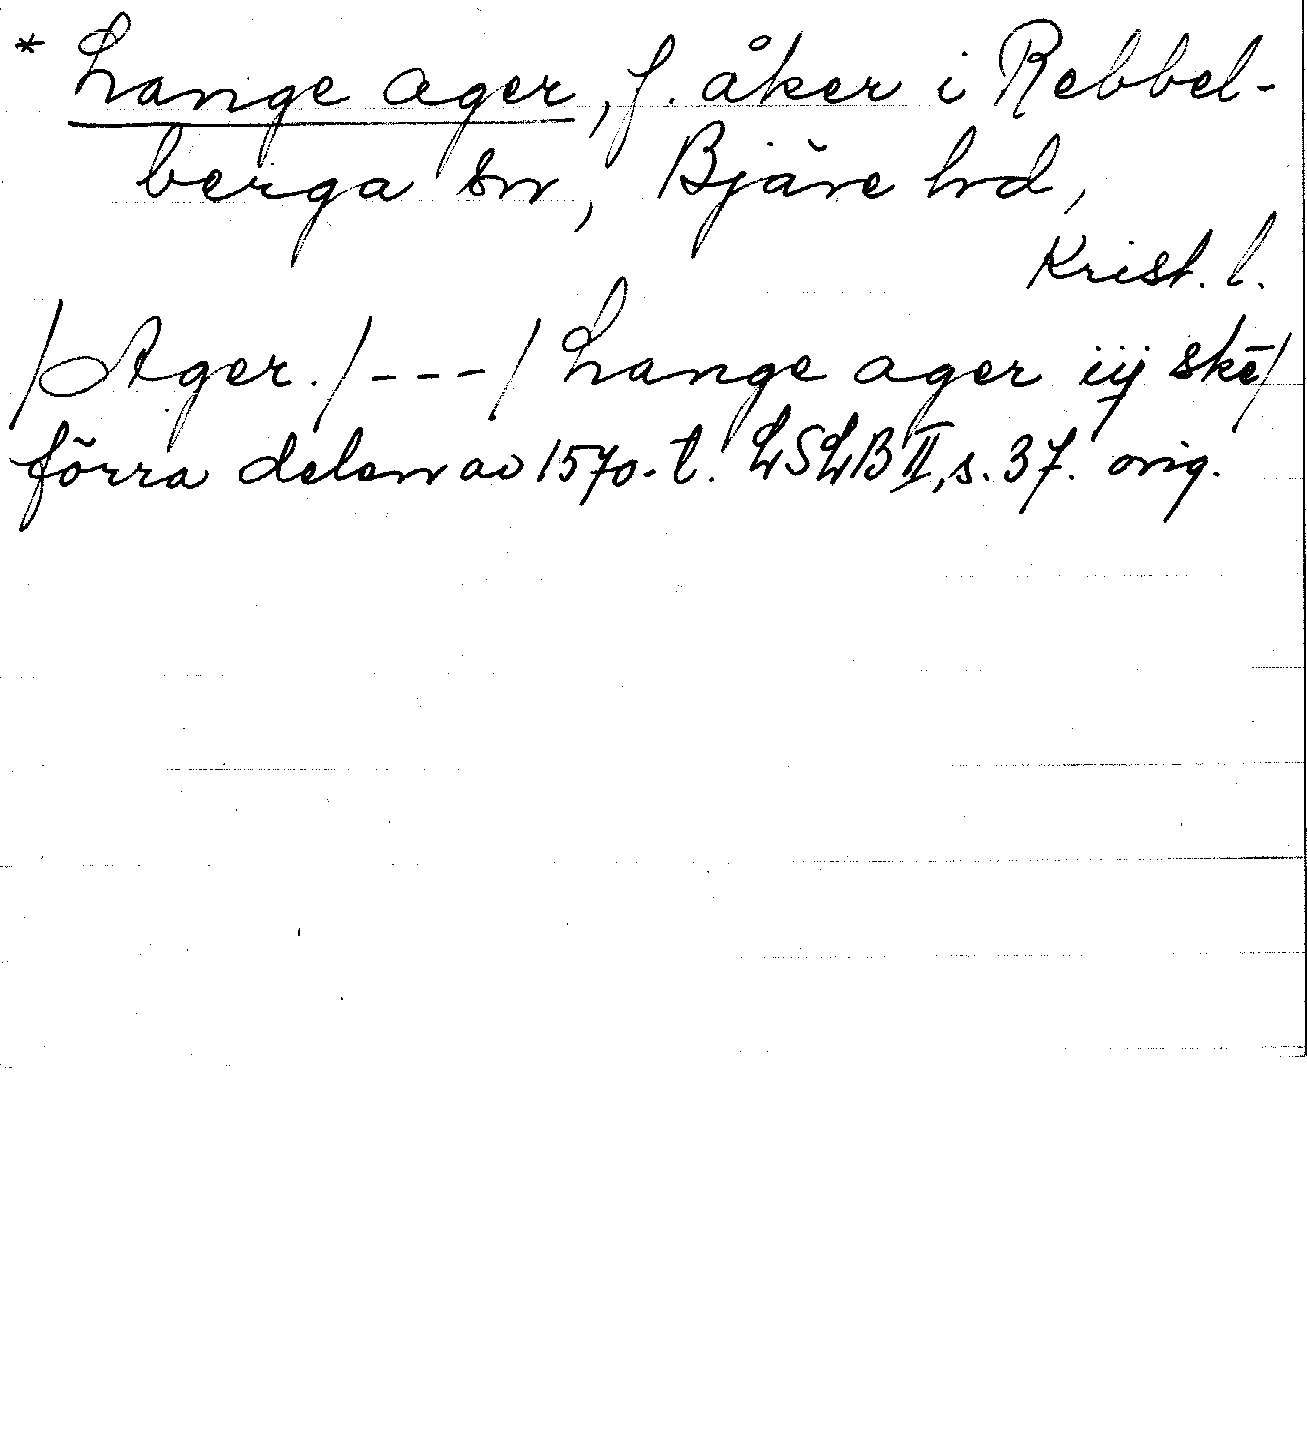 * Lange ager, f. åker i Rebbel-
berga sn, Bjäre hd,
Krist. l.
/Ager./---/Lange ager iij skē/
förra delen av 1570-t. LSLB II, s. 37. orig.